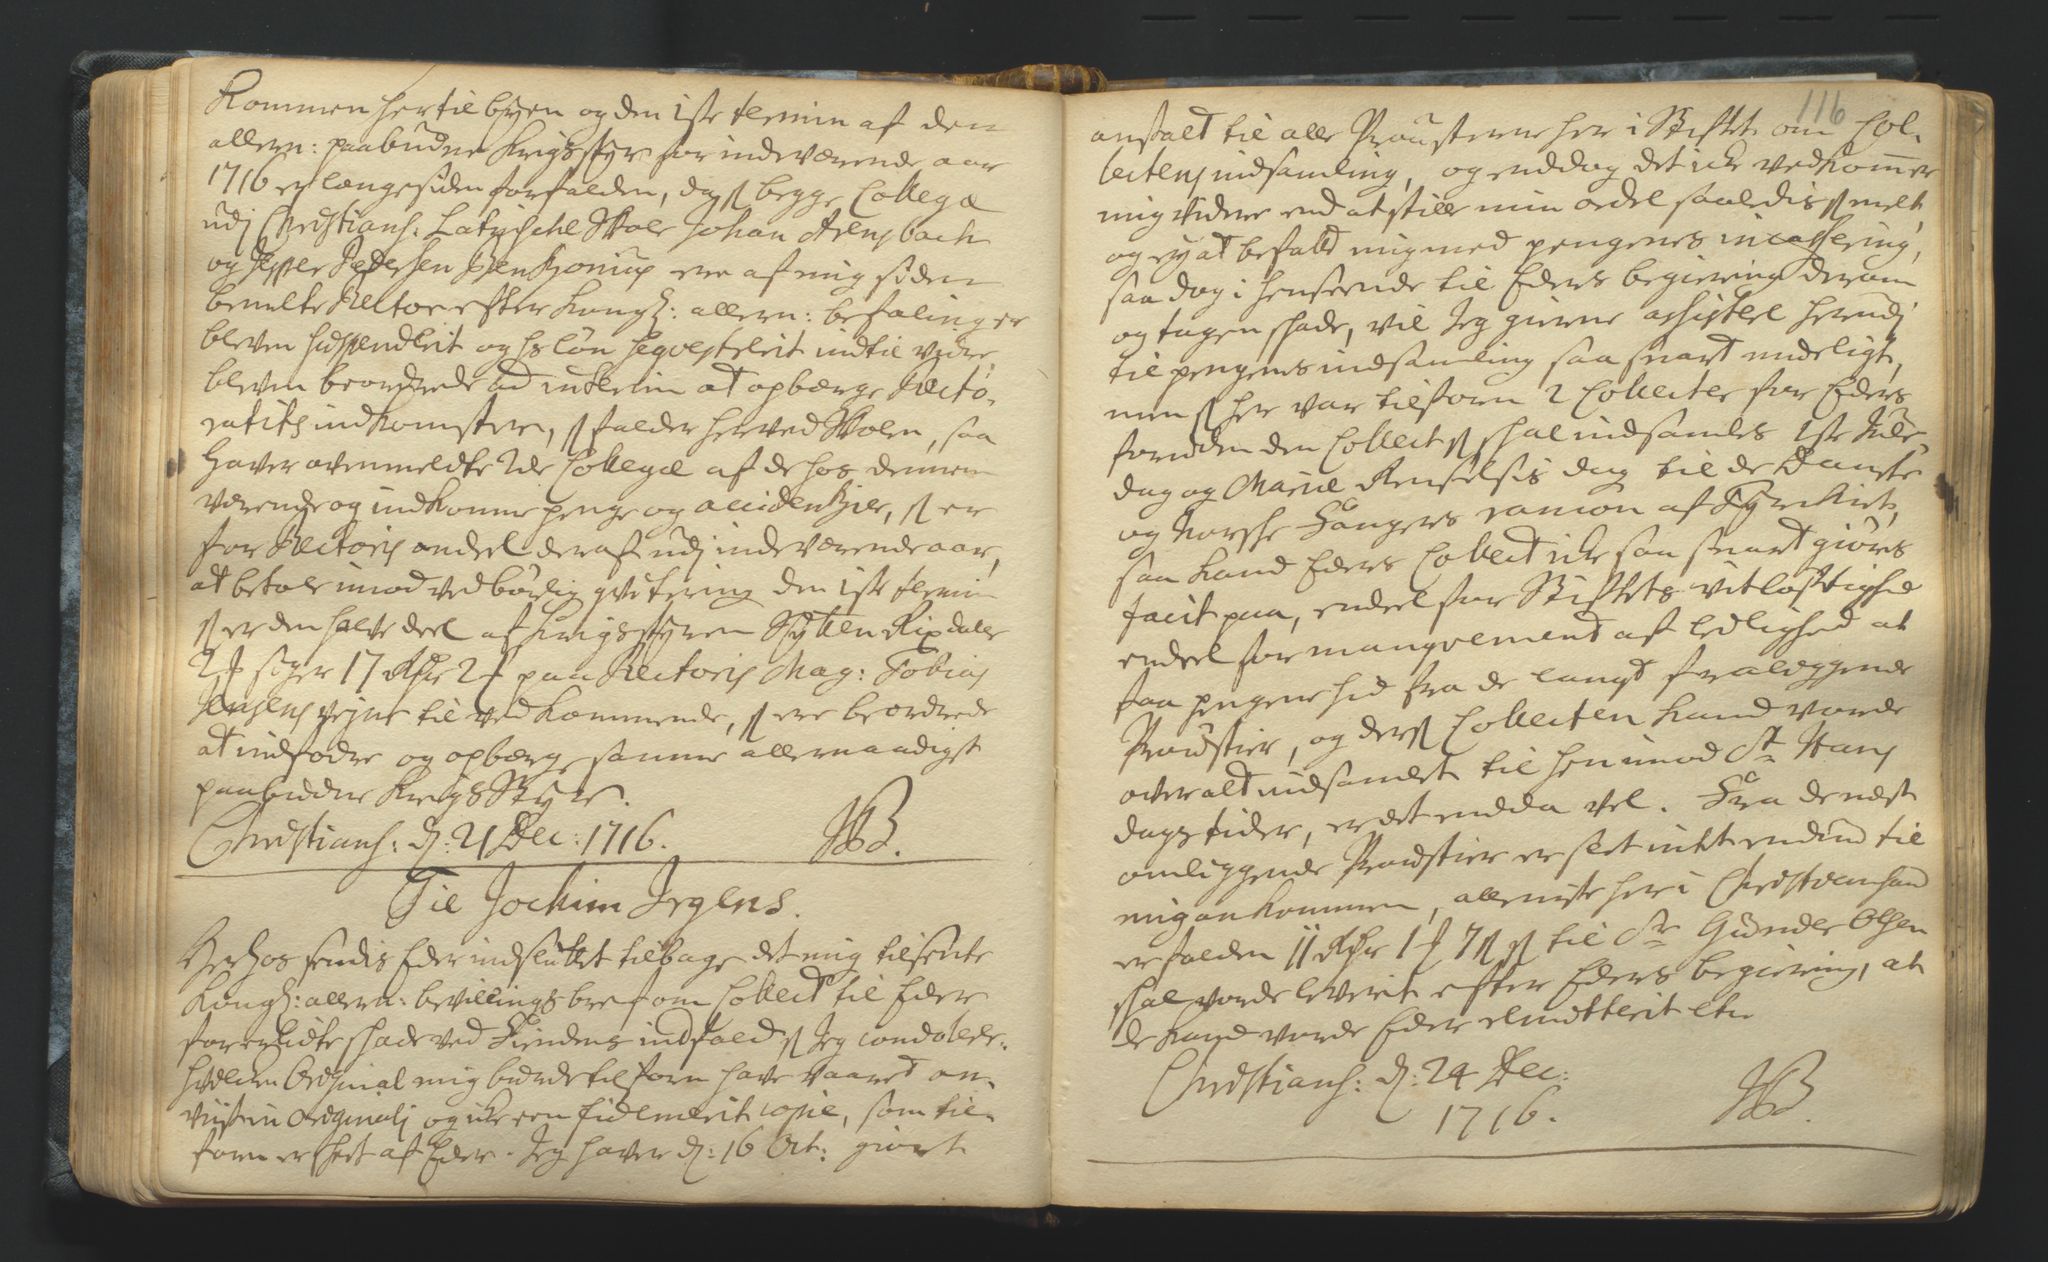 Kommen her til byen og den 1ste termin af den
allern: paabudne Krigsstyr for indeværende aar
1716 er længe siden forfalden, da begge Collegæ
udj Christians: Latinsche Skole Johan Arensbach
og Jesper Pedersen ere af mig siden
benefte Rector efter Kongl: allern: befalinger
bleven suspenderit og hs løn seqvesterit indtil vidre,
bleven beordrede ad interim at opbærge Recto-
ratets indkomster, som falder her ved Skolen, saa
haver ovenmeldte 2de Collegæ af de hos dennem
værende og indkomne penge og accidentzier, som er
for Rectoris andeel deraf udj indeværende aar,
at betale imod vedbørlig qvitering den 1ste termin
som er den halve deel af Krigsstyren Sytten Rixdaler
2 siger 17 Rdr 2 paa Rectoris Mag: Tobias
Jensens vegne til vedkommende, som ere beordrede
at indfodre og opbærge samme allernaadigst
paabudne Krigs Styr.
Christians: d: 21 Dec: 1716.
Til Jochim Jrgens.
Herhos sendis Eder indsluttet tilbage det mig tilsente
Kongl: allern: bevillings bref om Collect til Eder
for erlidte skade ved Fiendens indfald som Jeg condolerer.
hvilchen Original mig burde tilforn have vaaret an-
viist in originali og icke een fidemerit copie, som til-
forn er skeet af Eder. Jeg haver d: 16 Oct: giort
116
anstalt til alle Prousterne her i Stiftet om Col-
lectens indsamling, og enddog det icke vedkommer
mig videre end at stille min ordre saaledis som melt,
og ey at befatte mig med pengenes incassering,
saa dog i henseende til Eders begiering derom
og tagen skade, vil Jeg gierne assistere herudj
til pengenes indsamling saa snart mueligt,
men som her var tilforn 2 Collecter for Eders
foruden den Collect som skal indsamles 1ste Jule
dag og Mariæ Renselsis dag til de Danske
og Norske Fangers rancon af Tyrkiet,
saa kand Eders Collect icke saa snart giøres
facit paa, endeel for Stiftets vitløftighed
endeel for manqvement af leilighed at
faa pengene hid fra de langt fraliggende
Proustier, og ders Collecten kand vorde
overalt indsamlet til hen imod St Hans
dags tider, er det endda vel. Fra de nest
omliggende Proustier er slet intet endnu til
mig ankommen, alleniste her i Christiansand
er falden 11 Rdr 1 7 som til Sr Gunder Olsen
skal vorde leverit efter Eders begiering, at
de kand vorde Eder remitterit etc
Christians: d: 24 Dec:
1716.